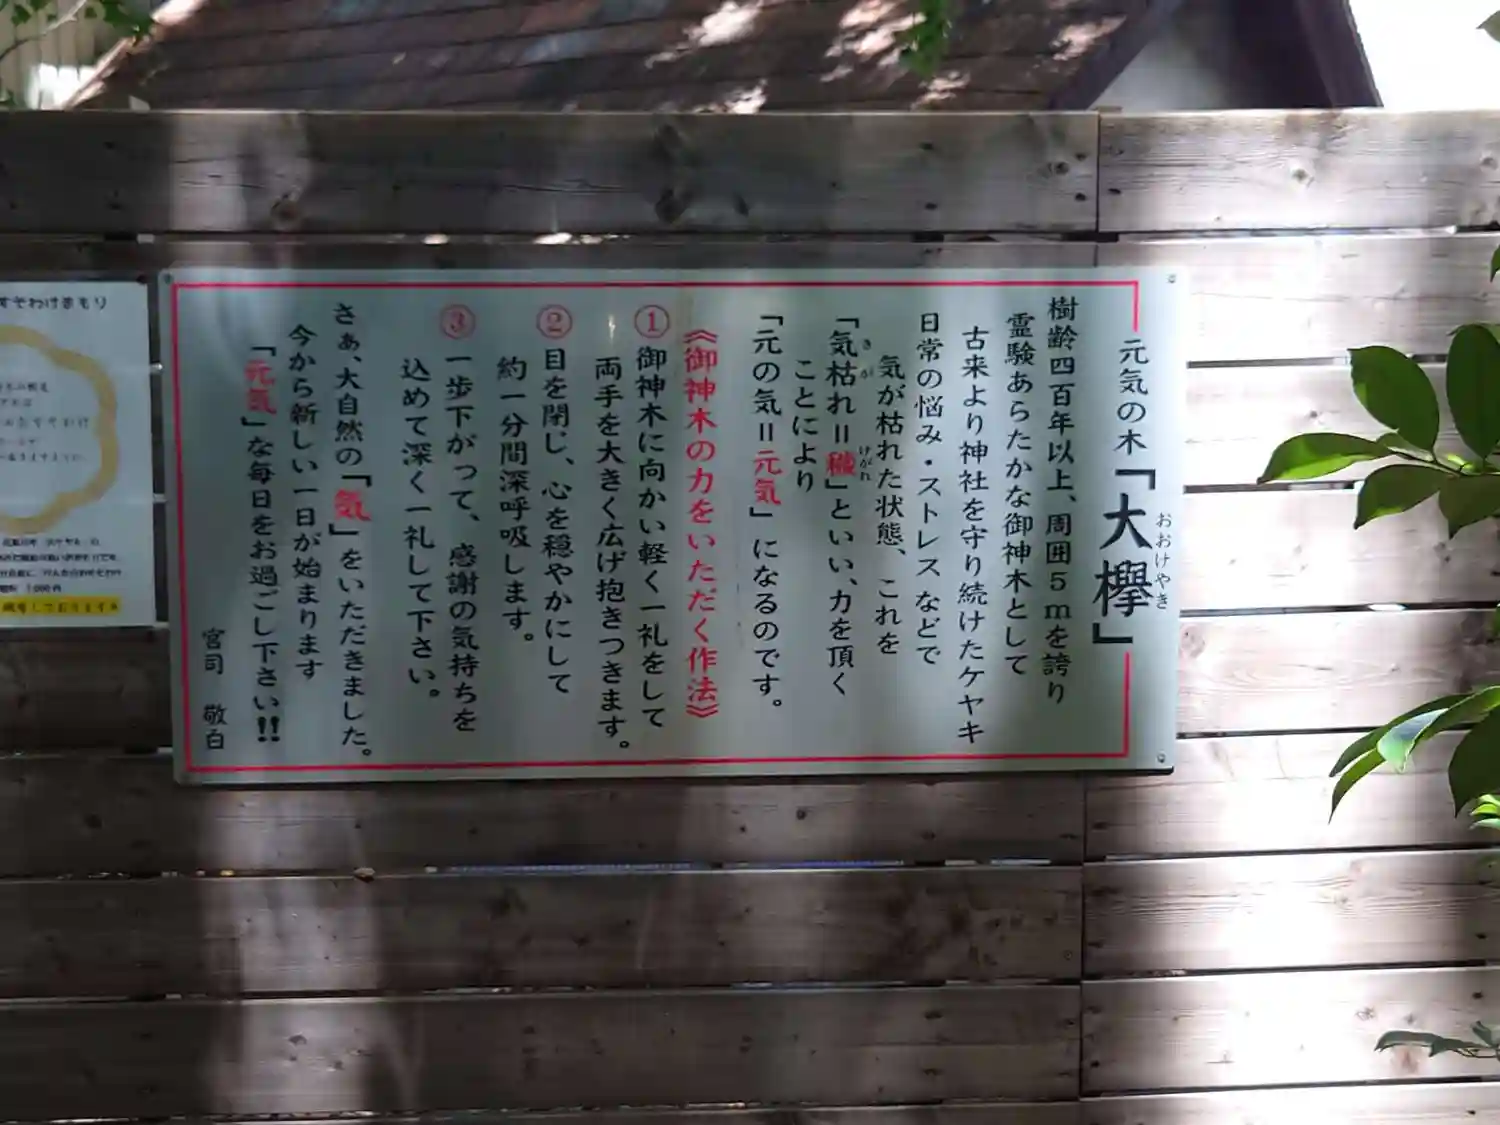 元気の木「大欅」
おおけやき
樹齢四百年以上、周囲5mを誇り
霊験あらたかな御神木として
古来より神社を守り続けたケヤキ
日常の悩み・ストレスなどで
気が枯れた状態、これを
「気枯れ＝穢」といい、力を頂く
きが
けがれ
ことにより
「元の気＝元気」になるのです。
《御神木の力をいただく作法》
①御神木に向かい軽く一礼をして
両手を大きく広げ抱きつきます。
②目を閉じ、心を穏やかにして
約一分間深呼吸します。
③一歩下がって、感謝の気持ちを
込めて深く一礼して下さい。
さぁ、大自然の「気」をいただきました。
今から新しい一日が始まります
「元気」な毎日をお過ごし下さい!!
宮司 敬白
すそわけまもり